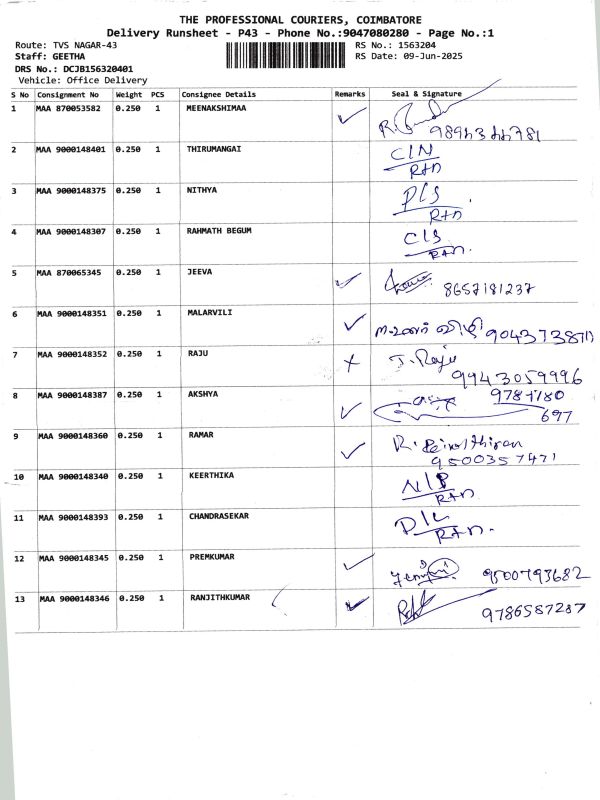 THE PROFESSIONAL COURIERS, COIMBATORE
Delivery Runsheet - P43 - Phone No.:9047080280 - Page No.:1
Route: TVS NAGAR-43 RS No.: 1563204
Staff: GEETHA RS Date: 09-Jun-2025
DRS No.: DCJB156320401
Vehicle: Office Delivery
S No Consignment No Weight PCS Consignee Details Remarks Seal & Signature
1 MAA 870053582 0.250 1 MEENAKSHIMAA ✓
2 MAA 9000148401 0.250 1 THIRUMANGAI C/N
Rtn
3 MAA 9000148375 0.250 1 NITHYA D/S
Rtn
4 MAA 9000148307 0.250 1 RAHMATH BEGUM C/S
Rtn.
5 MAA 870065345 0.250 1 JEEVA ✓ 8657181237
6 MAA 9000148351 0.250 1 MALARVILI ✓
7 MAA 9000148352 0.250 1 RAJU ✗ J. Raju
9943059996
8 MAA 9000148387 0.250 1 AKSHYA ✓ 9787780
697
9 MAA 9000148360 0.250 1 RAMAR ✓ R.
9500357471
10 MAA 9000148340 0.250 1 KEERTHIKA N/P
Rtn
11 MAA 9000148393 0.250 1 CHANDRASEKAR D/L
Rtn.
12 MAA 9000148345 0.250 1 PREMKUMAR ✓ 9500793682
13 MAA 9000148346 0.250 1 RANJITHKUMAR ✓ 9786587287